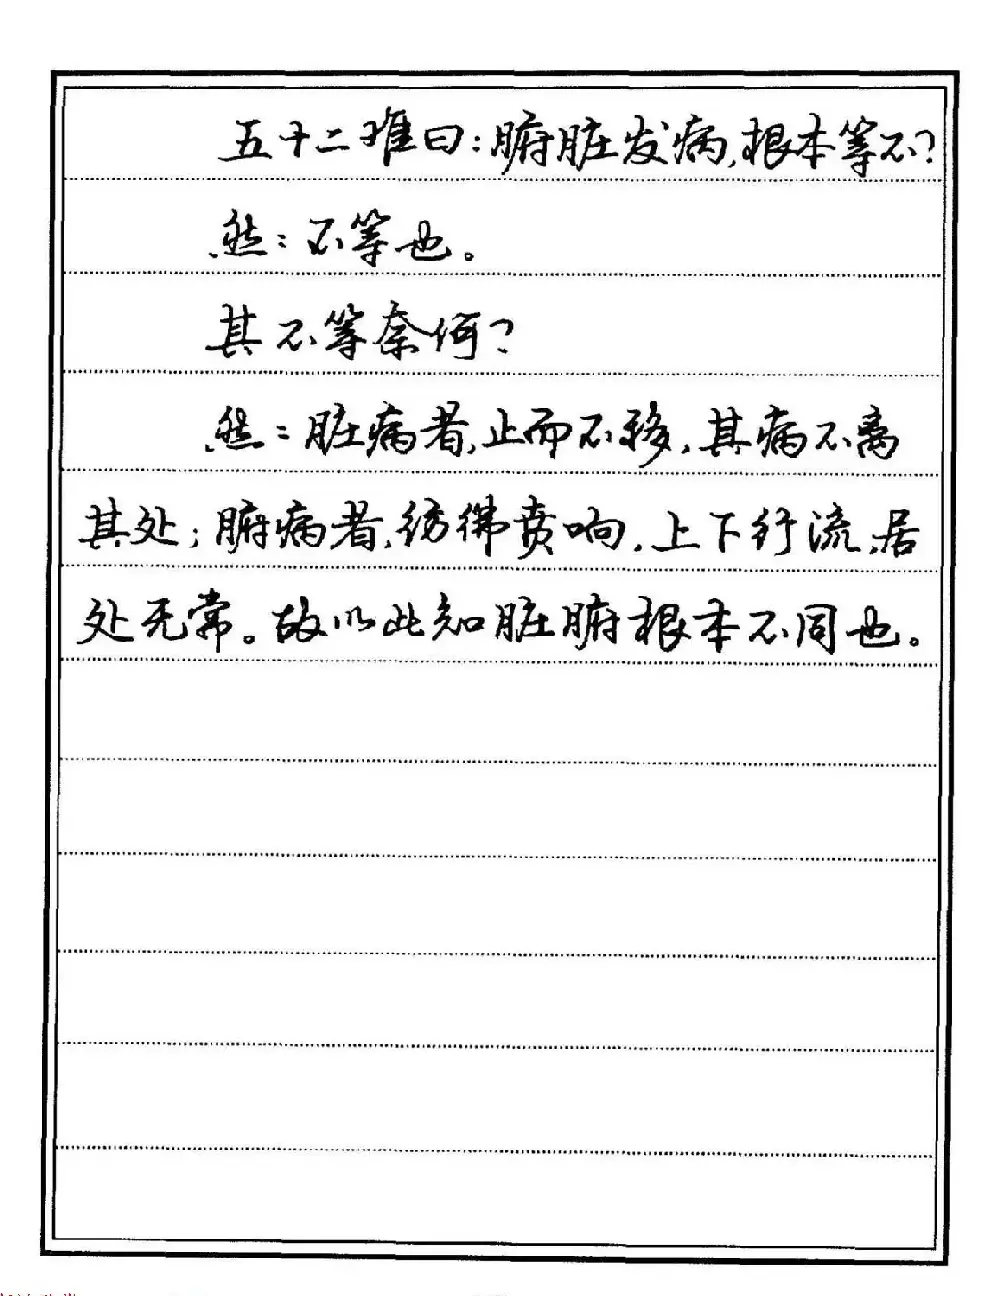 五十二难曰：腑脏发病，根本等不？
然：不等也。
其不等奈何？
然：脏病者，止而不移，其病不离
其处；腑病者，彷彿贲响，上下行流，居
处无常。故以此知脏腑根本不同也。